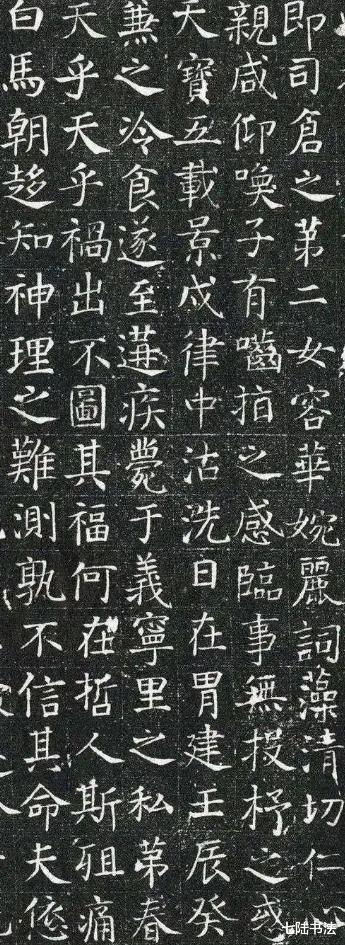 即司倉之第二女容華婉麗詞藻清切仁
親咸仰喚子有嚙指之感臨事無投杼之惑
天寶五載景戌律中沽洗日在胃建壬辰癸
兼之冷食遂至遘疾薨于義寧里之私第春
天乎天乎禍出不圖其福何在哲人斯殂痛
白馬朝趍知神理之難測孰不信其命夫依
七陆书法